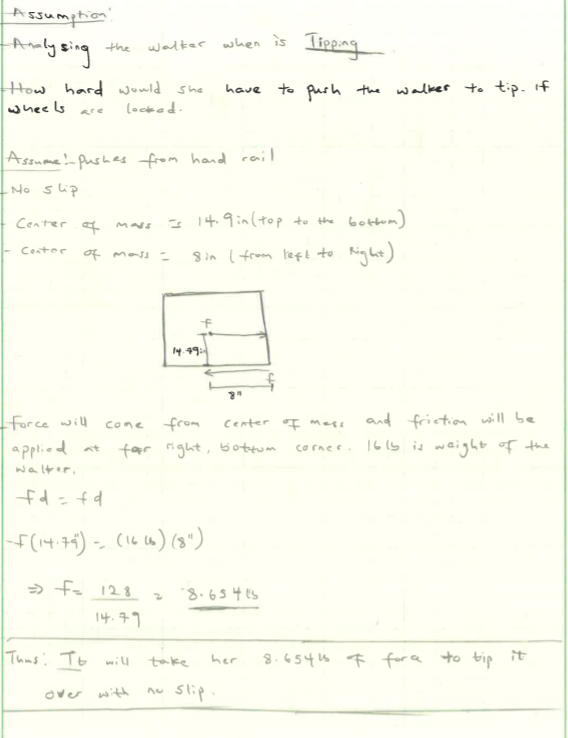 Assumption:
- Analysing the walker when is Tipping
- How hard would she have to push the walker to tip. if
wheels are locked.
Assume:- Pushes from hand rail
- No slip
- Center of mass = 14.9in (top to the bottom)
- Center of mass = 8in (from left to Right)
f
14.79in
f
8"
- Force will come from center of mass and friction will be
applied at far right, bottom corner. 16lb is weight of the
walter.
fd = fd
f(14.79") = (16 lb)(8")
⇒ f = 128 = 8.654 lb
14.79
Thus: It will take her 8.654 lb of force to tip it
over with no slip.